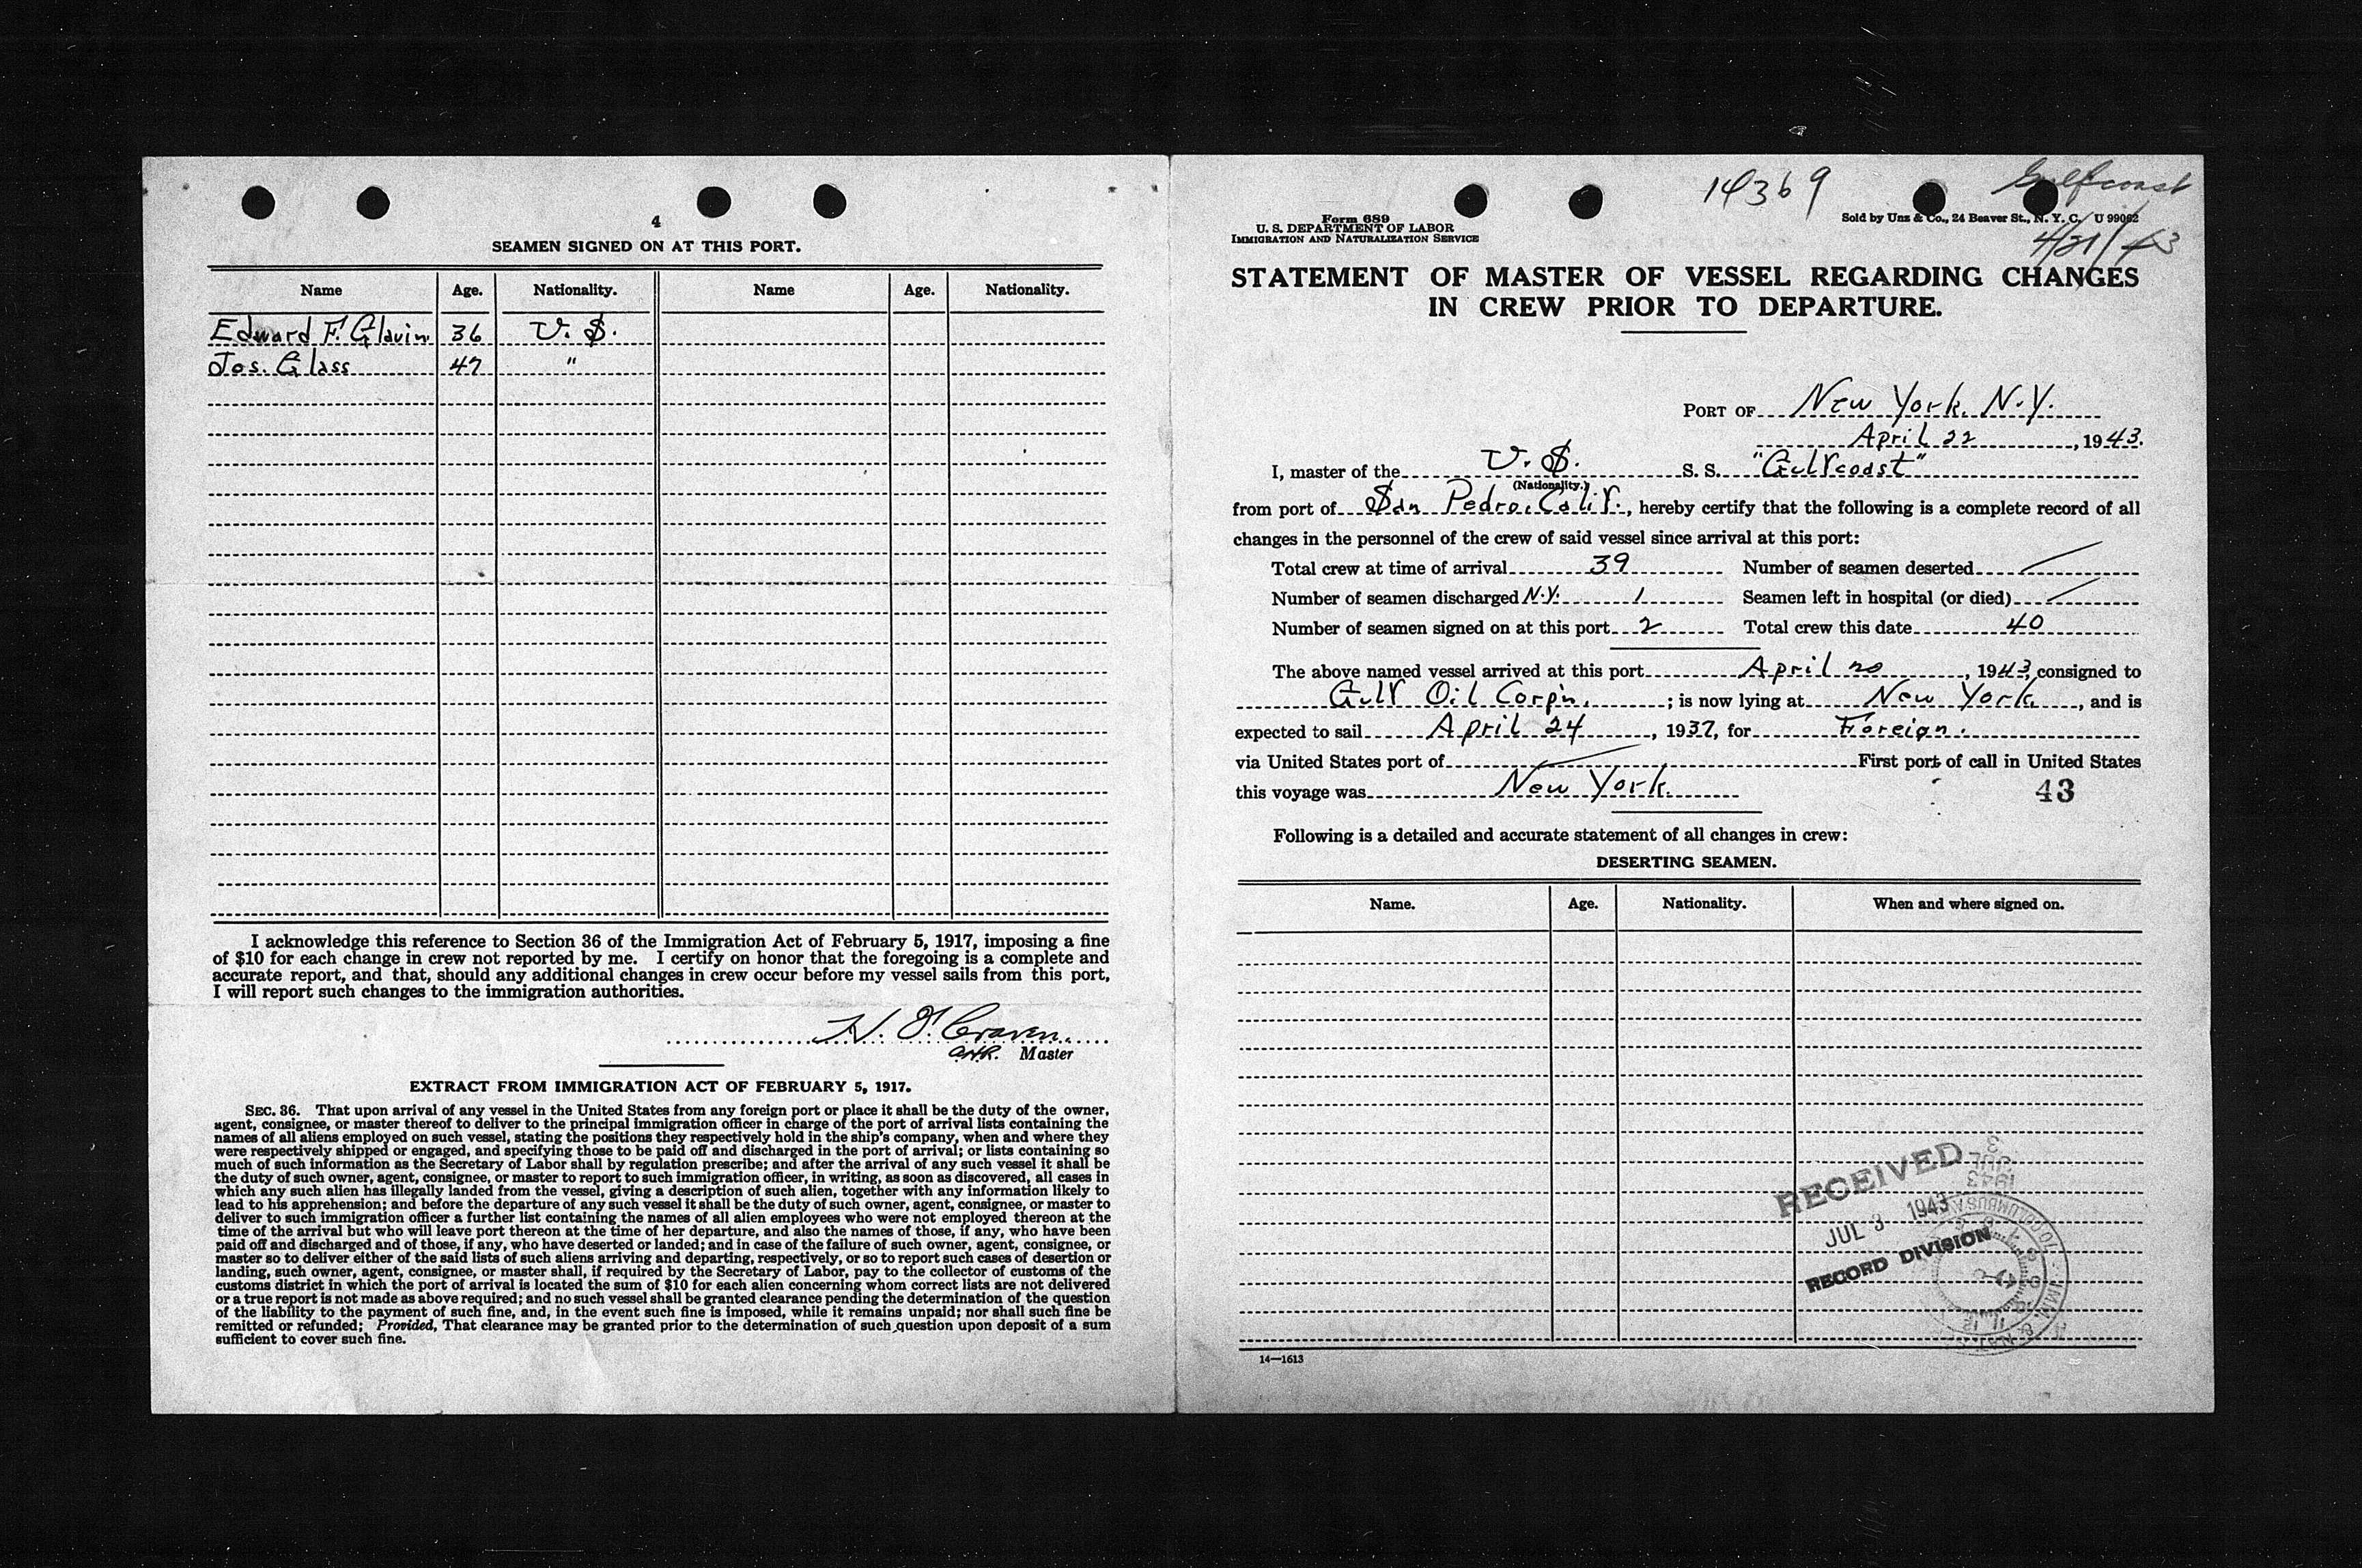 4
SEAMEN SIGNED ON AT THIS PORT.
Name Age. Nationality. Name Age. Nationality.
Edward F. Glavin 36 U.S.
Jos. Glass 47 "
I acknowledge this reference to Section 36 of the Immigration Act of February 5, 1917, imposing a fine
of $10 for each change in crew not reported by me. I certify on honor that the foregoing is a complete and
accurate report, and that, should any additional changes in crew occur before my vessel sails from this port,
I will report such changes to the immigration authorities.
H. F. Craven
Master
EXTRACT FROM IMMIGRATION ACT OF FEBRUARY 5, 1917.
SEC. 36. That upon arrival of any vessel in the United States from any foreign port or place it shall be the duty of the owner,
agent, consignee, or master thereof to deliver to the principal immigration officer in charge of the port of arrival lists containing the
names of all aliens employed on such vessel, stating the positions they respectively hold in the ship's company, when and where they
were respectively shipped or engaged, and specifying those to be paid off and discharged in the port of arrival; or lists containing so
much of such information as the Secretary of Labor shall by regulation prescribe; and after the arrival of any such vessel it shall be
the duty of such owner, agent, consignee, or master to report to such immigration officer, in writing, as soon as discovered, all cases in
which any such alien has illegally landed from the vessel, giving a description of such alien, together with any information likely to
lead to his apprehension; and before the departure of any such vessel it shall be the duty of such owner, agent, consignee, or master to
deliver to such immigration officer a further list containing the names of all alien employees who were not employed thereon at the
time of the arrival but who will leave port thereon at the time of her departure, and also the names of those, if any, who have been
paid off and discharged and of those, if any, who have deserted or landed; and in case of the failure of such owner, agent, consignee, or
master so to deliver either of the said lists of such aliens arriving and departing, respectively, or so to report such cases of desertion or
landing, such owner, agent, consignee, or master shall, if required by the Secretary of Labor, pay to the collector of customs of the
customs district in which the port of arrival is located the sum of $10 for each alien concerning whom correct lists are not delivered
or a true report is not made as above required; and no such vessel shall be granted clearance pending the determination of the question
of the liability to the payment of such fine, and, in the event such fine is imposed, while it remains unpaid; nor shall such fine be
remitted or refunded; Provided, That clearance may be granted prior to the determination of such question upon deposit of a sum
sufficient to cover such fine.
14369
Gulfcoast
4/21/43
Form 689
U. S. DEPARTMENT OF LABOR
IMMIGRATION AND NATURALIZATION SERVICE
Sold by Unz & Co., 24 Beaver St., N. Y. C. U 99062
STATEMENT OF MASTER OF VESSEL REGARDING CHANGES
IN CREW PRIOR TO DEPARTURE.
PORT OF New York, N.Y.
April 22, 1943.
I, master of the U.S. S. S. "Gulfcoast"
(Nationality.)
from port of San Pedro, Calif., hereby certify that the following is a complete record of all
changes in the personnel of the crew of said vessel since arrival at this port:
Total crew at time of arrival 39 Number of seamen deserted
Number of seamen discharged N.Y. 1 Seamen left in hospital (or died)
Number of seamen signed on at this port 2 Total crew this date 40
The above named vessel arrived at this port April 20, 1943, consigned to
Gulf Oil Corp'n. ; is now lying at New York, and is
expected to sail April 24, 1937, for Foreign.
via United States port of First port of call in United States
this voyage was New York. 43
Following is a detailed and accurate statement of all changes in crew:
DESERTING SEAMEN.
Name. Age. Nationality. When and where signed on.
RECEIVED
JUL 3 1943
RECORD DIVISION
1943
JUL
3
14—1613